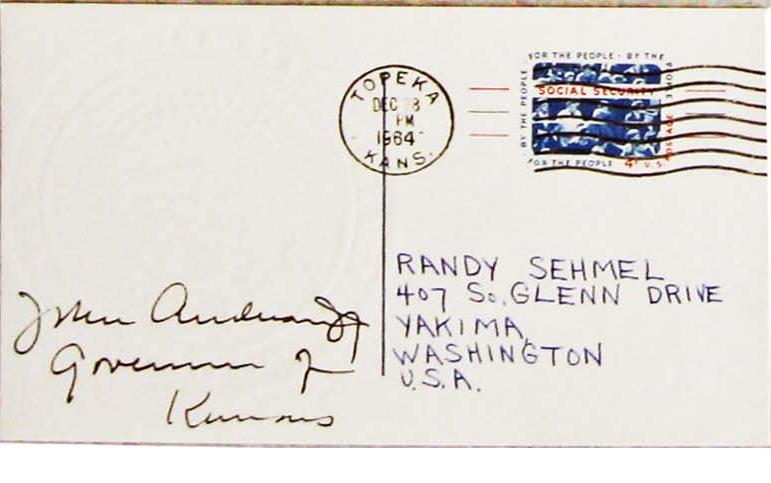 TOPEKA
DEC 28
PM
1964
KANS.
FOR THE PEOPLE · BY THE PEOPLE
· BY THE PEOPLE
FOR THE PEOPLE
SOCIAL SECURITY
4¢ U.S. POSTAGE
John Anderson Jr
Governor of
Kansas
RANDY SEHMEL
407 So. GLENN DRIVE
YAKIMA,
WASHINGTON
U.S.A.